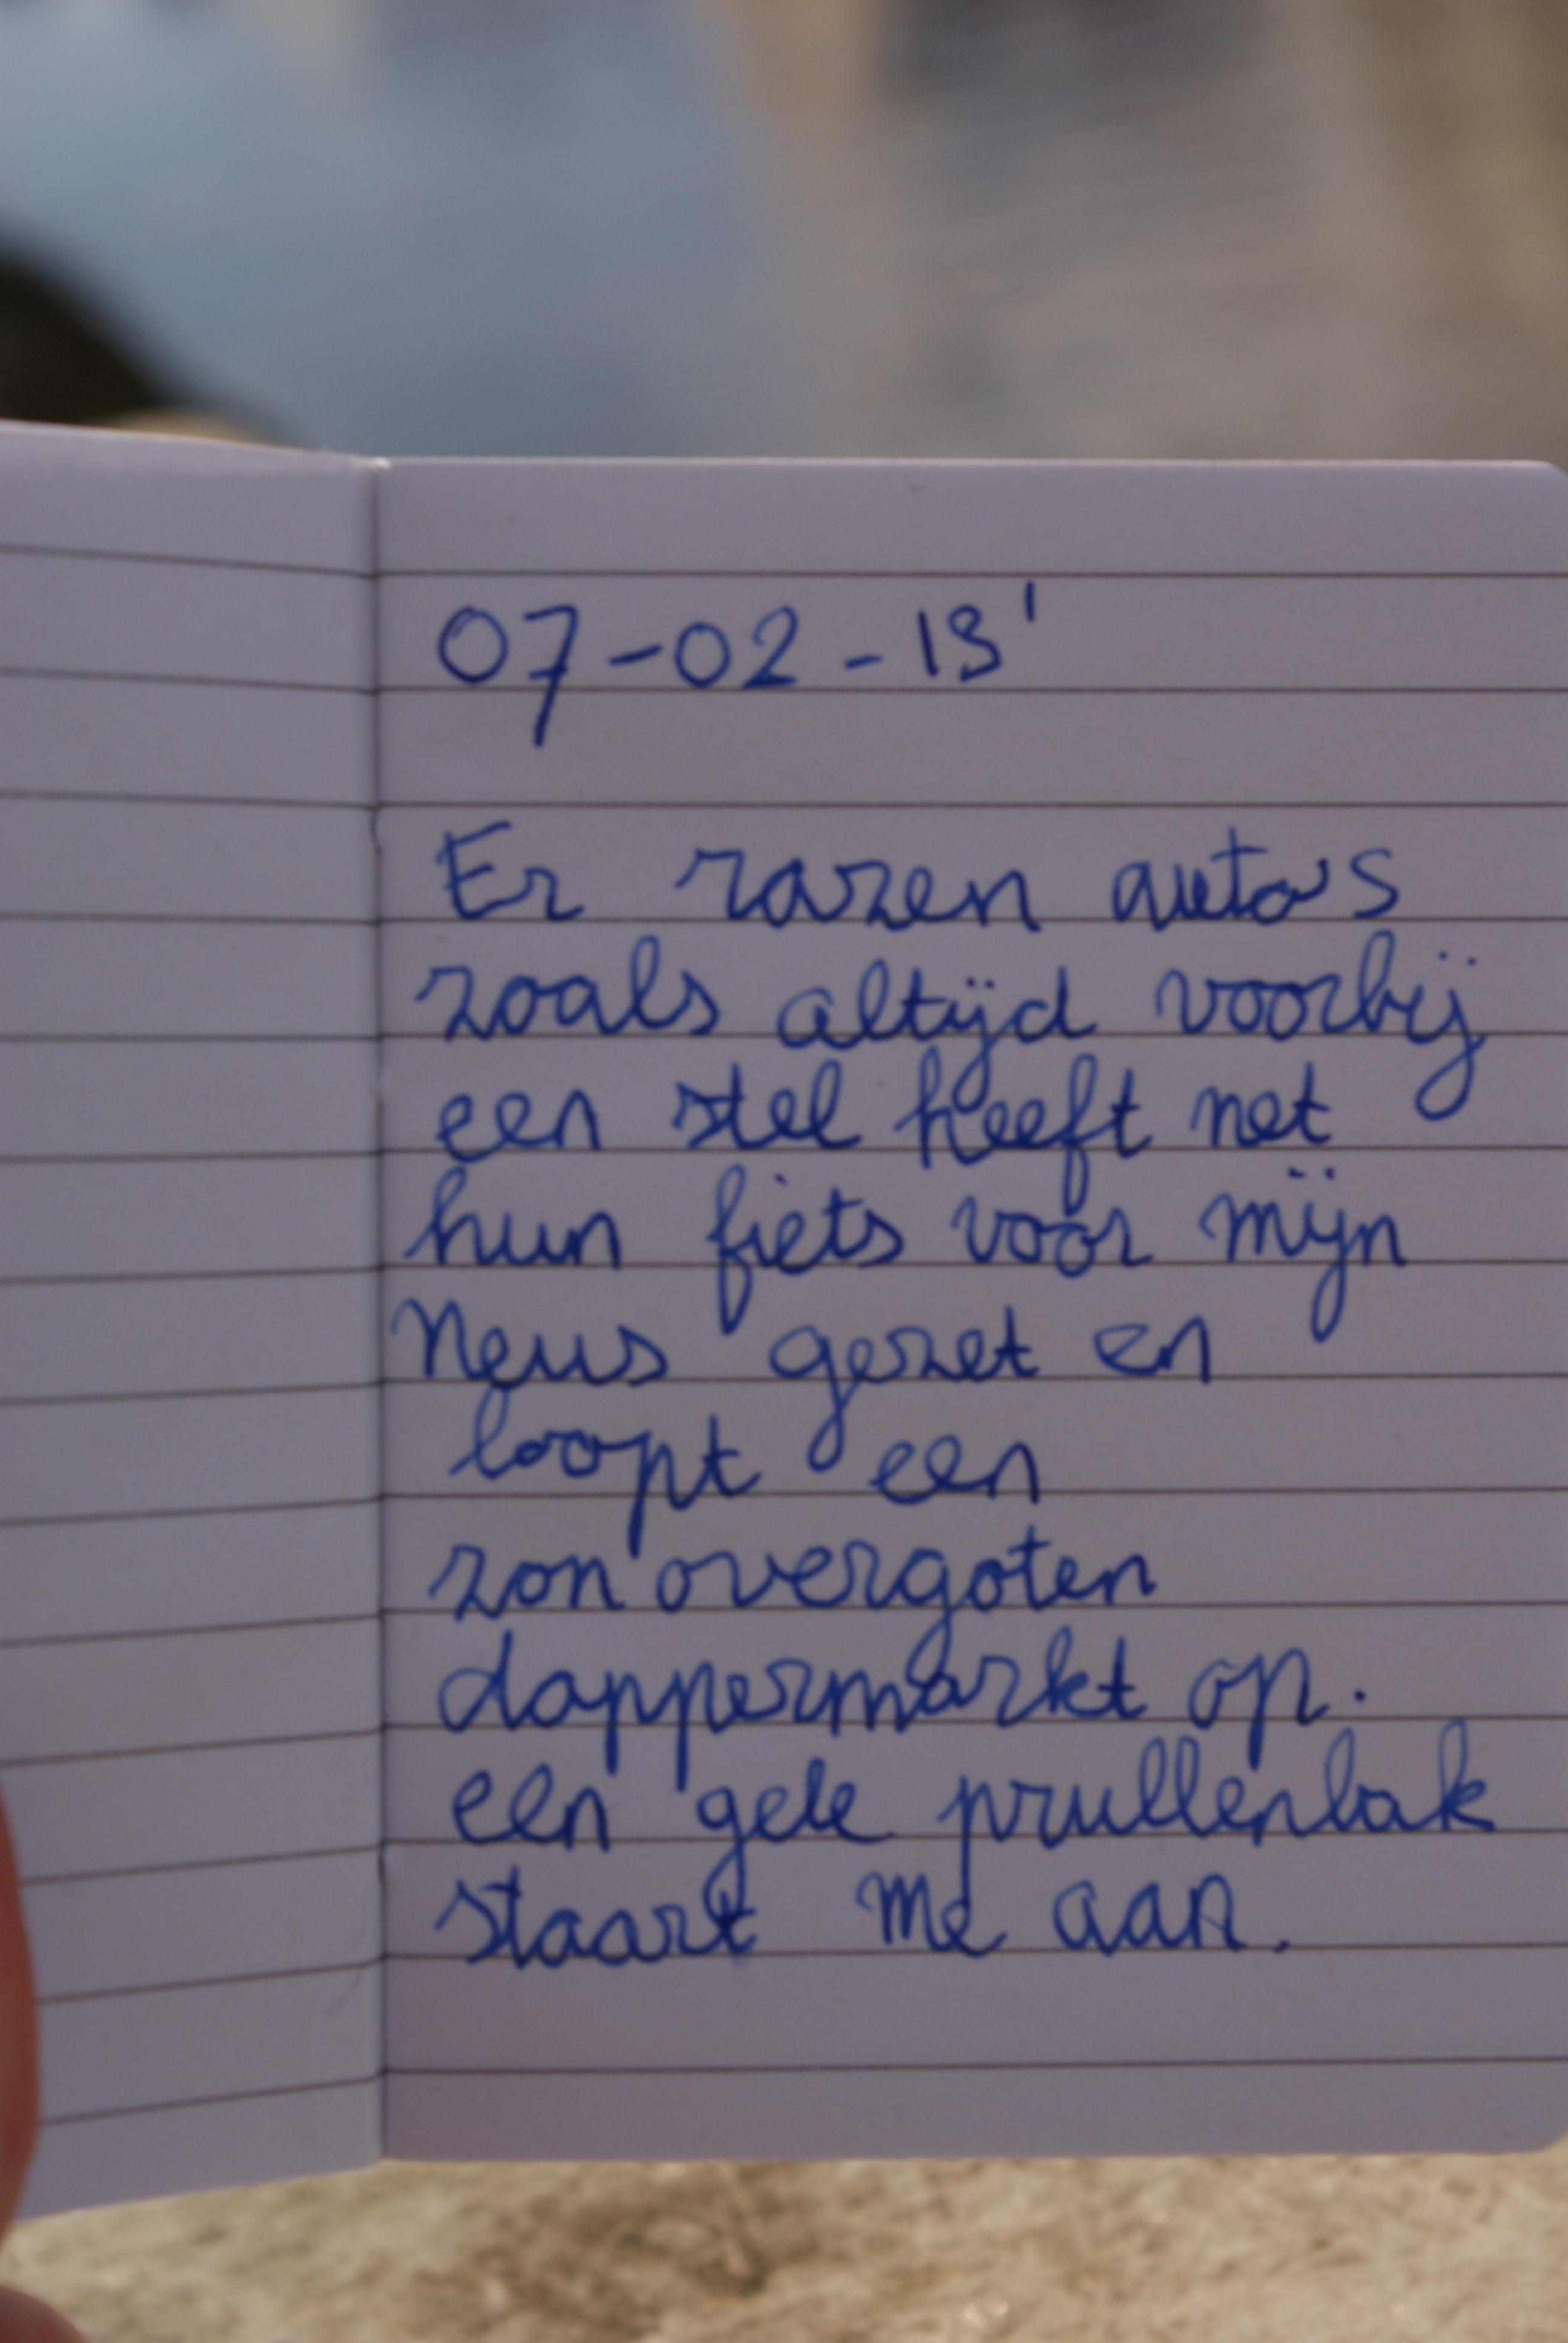 07-02-13'
Er razen auto's
zoals altijd voorbij
een stel heeft net
hun fiets voor mijn
neus gezet en
loopt een
zon overgoten
dappermarkt op.
een gele prullenbak
staart me aan.